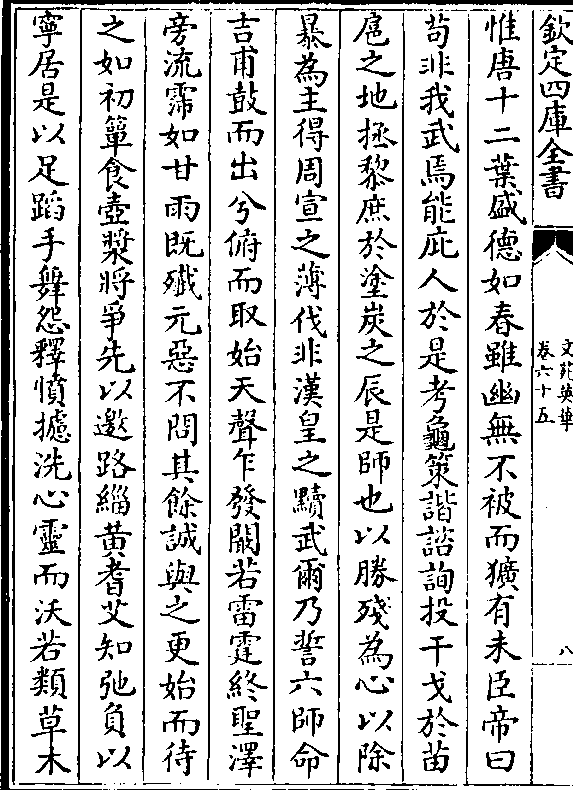 欽定四庫全書
文苑英華
卷六十五
八
惟唐十二葉盛德如春雖幽無不被而獷有未臣帝曰
茍非我武焉能庇人於是考龜策諧諮詢投干戈於苗
扈之地拯黎庶於塗炭之辰是師也以勝殘為心以除
暴為主得周宣之薄伐非漢皇之黷武爾乃誓六師命
吉甫鼓而出兮俯而取始天聲乍發闞若雷霆終聖澤
旁流霈如甘雨既殱元惡不問其餘誠與之更始而待
之如初簞食壺漿將爭先以邀路緇黄耆艾知弛負以
寧居是以足蹈手舞怨釋憤攄洗心靈而沃若類草木